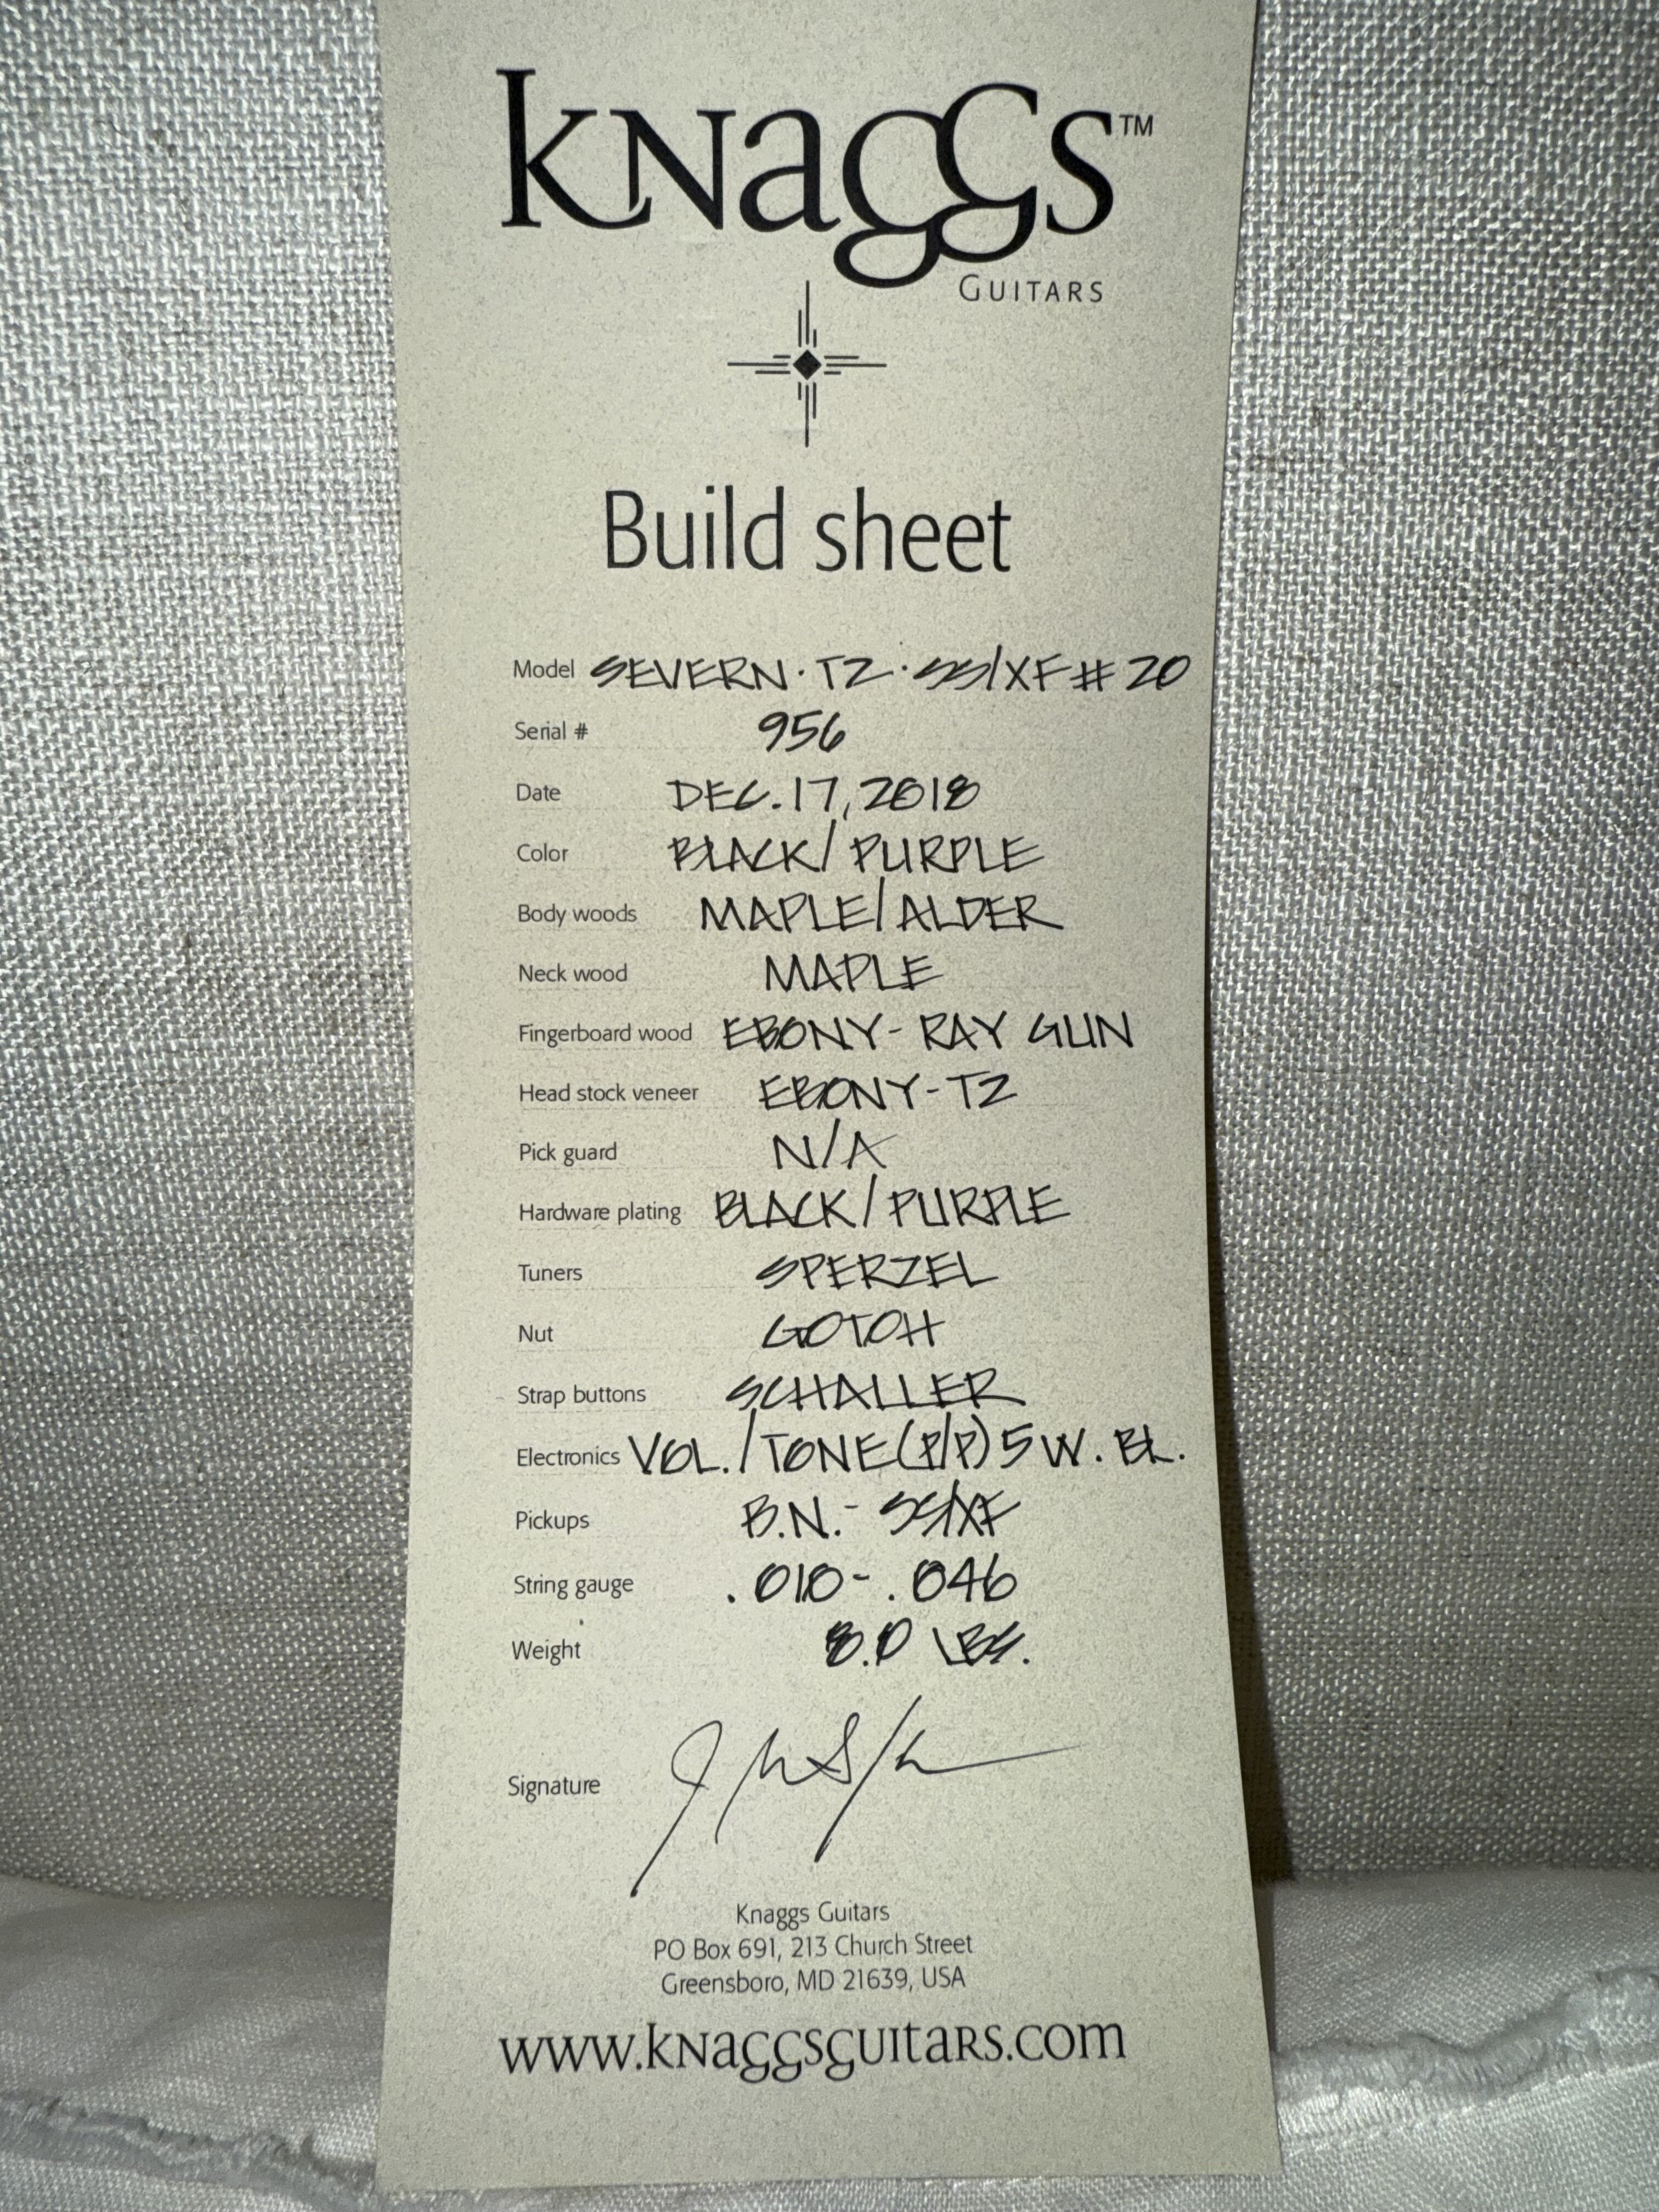 KNAGGS™
GUITARS
Build sheet
Model SEVERN · TZ · SS/XF # 20
Serial # 956
Date DEC. 17, 2018
Color BLACK/ PURPLE
Body woods MAPLE/ALDER
Neck wood MAPLE
Fingerboard wood EBONY - RAY GUN
Head stock veneer EBONY - TZ
Pick guard N/A
Hardware plating BLACK/PURPLE
Tuners SPERZEL
Nut GOTOH
Strap buttons SCHALLER
Electronics VOL./TONE(P/P) 5 W. BL.
Pickups B.N. - SS/XF
String gauge .010 - .046
Weight 8.0 LBS.
Signature
Knaggs Guitars
PO Box 691, 213 Church Street
Greensboro, MD 21639, USA
www.KNaGGSGUITaRS.com